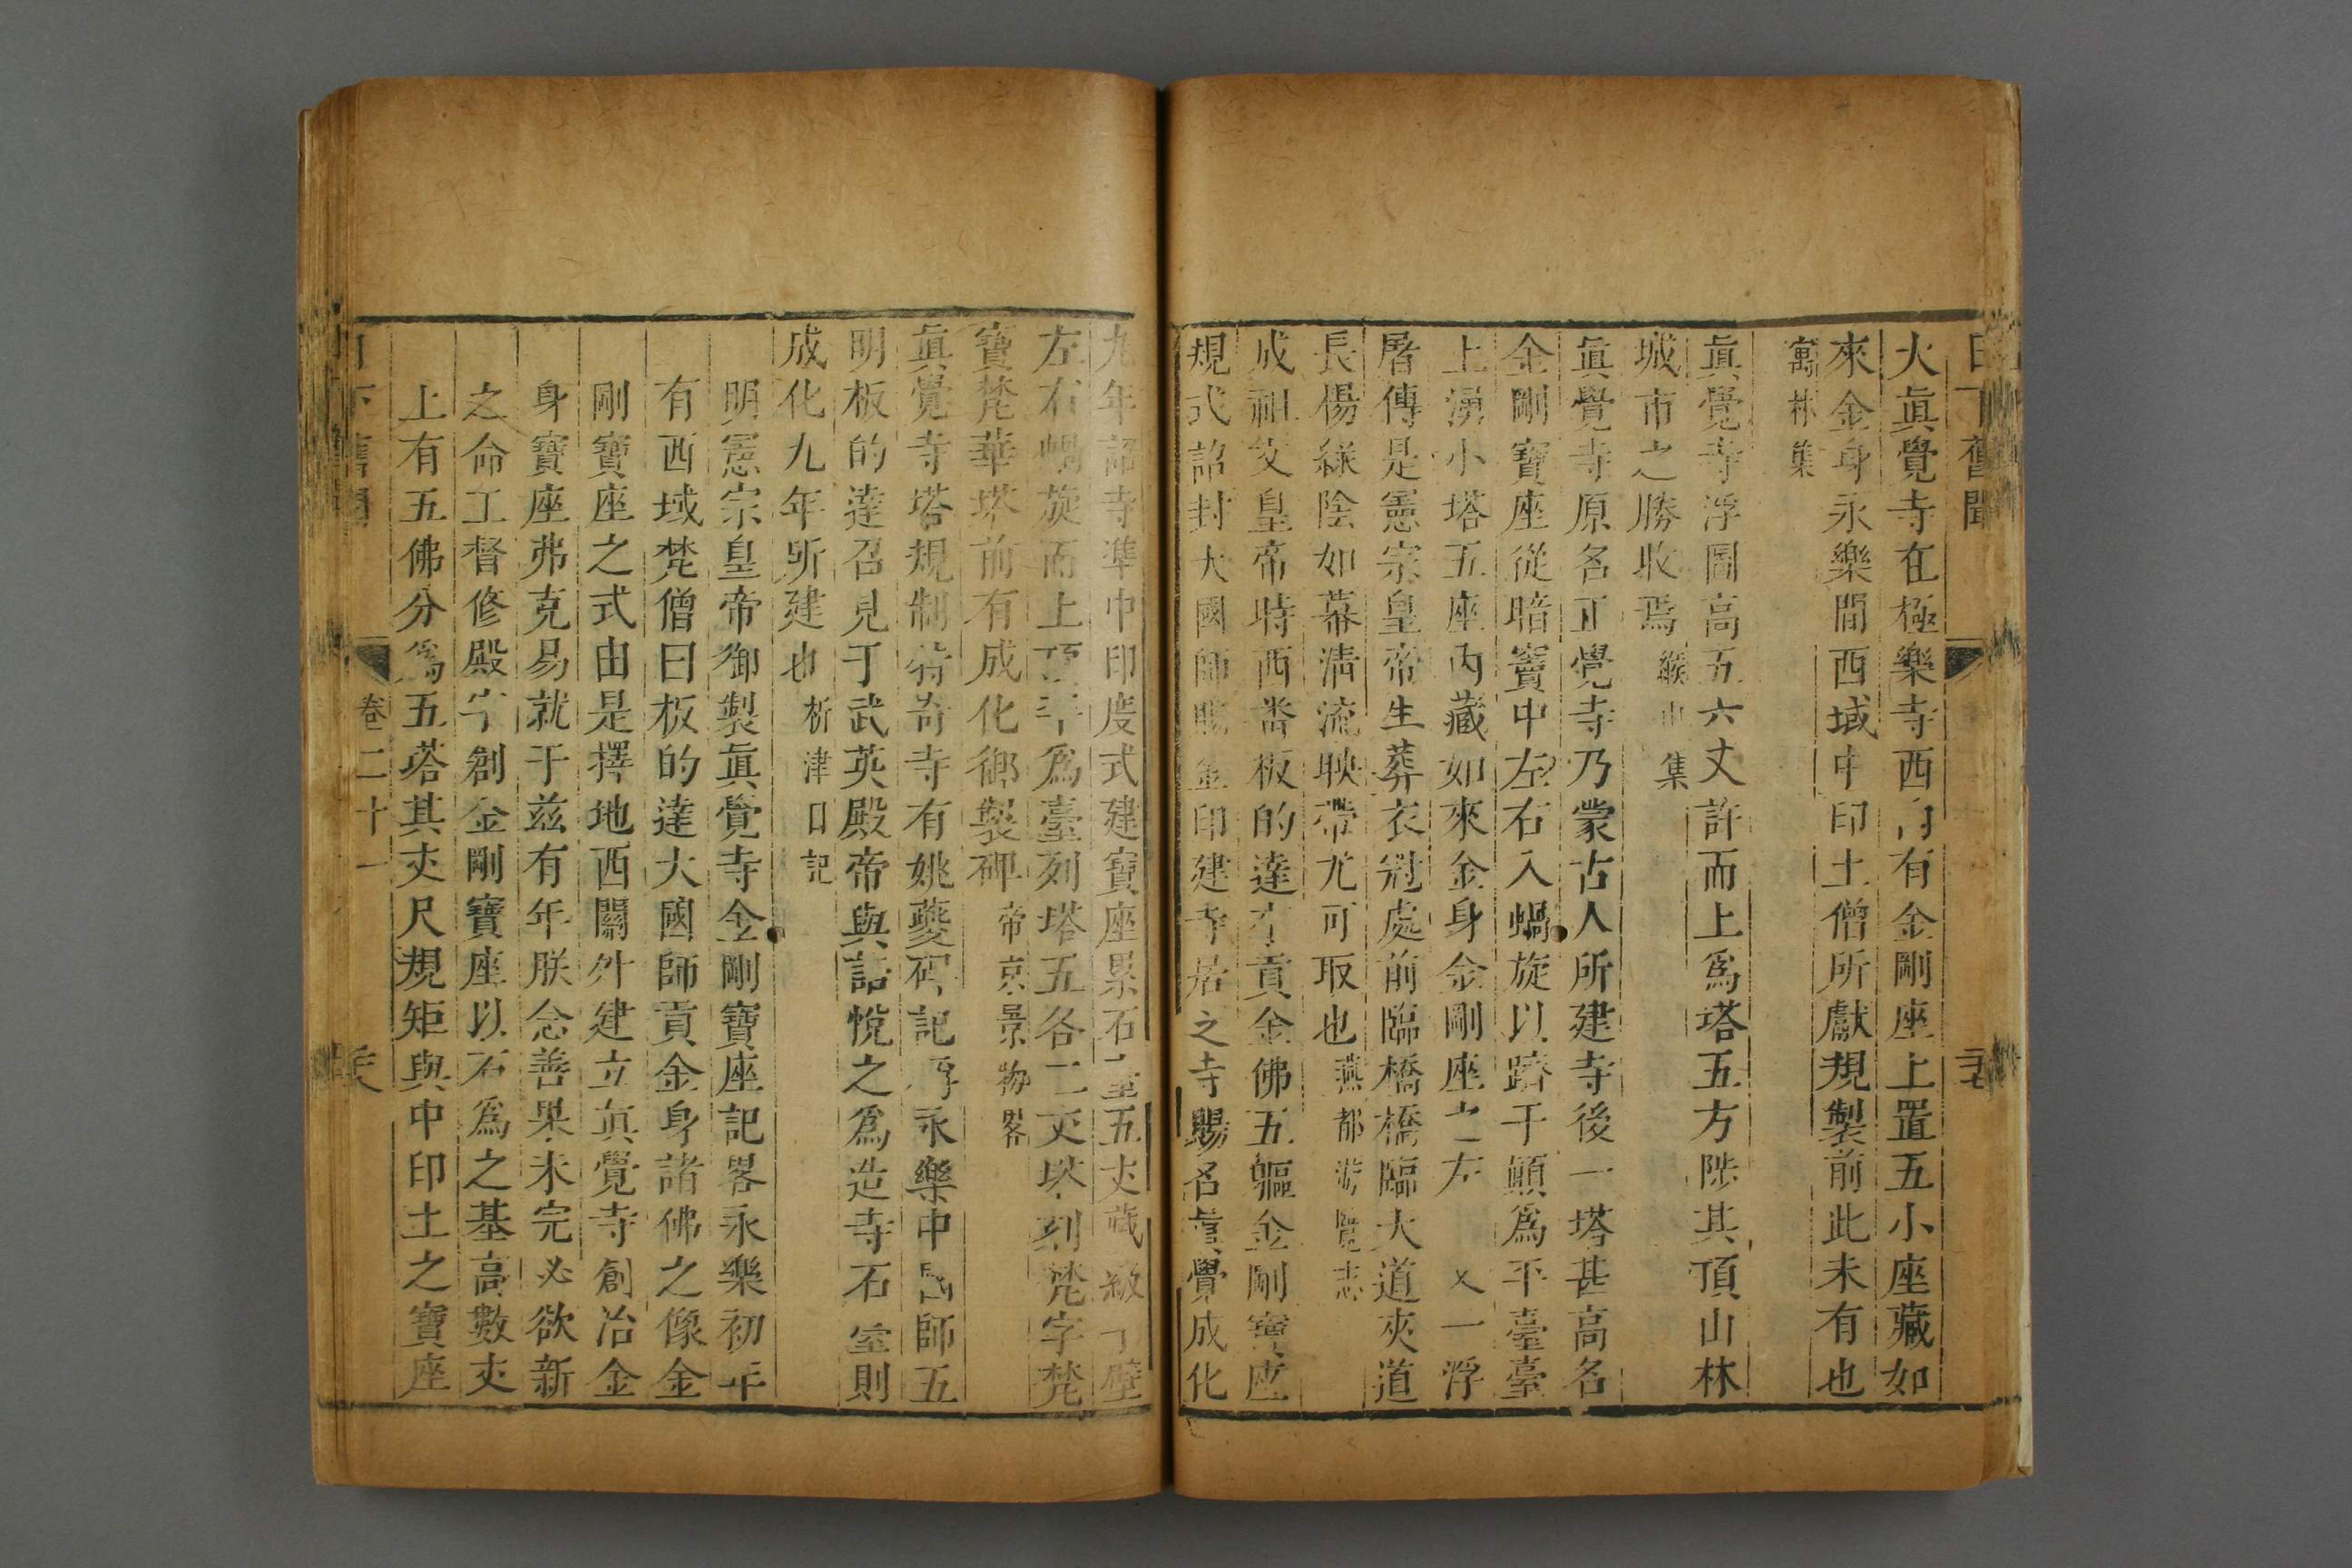 日下舊聞
火眞覺寺在極樂寺西內有金剛座上置五小座藏如
來金身永樂間西域中印土僧所獻規製前此未有也
寓林集
眞覺寺浮圖高五六丈許而上爲塔五方陟其頂山林
城市之勝收焉緱山集
眞覺寺原名正覺寺乃蒙古人所建寺後一塔甚高名
金剛寶座從暗竇中左右入蝸旋以躋于顛爲平臺臺
上湧小塔五座內藏如來金身金剛座之左又一浮
屠傳是憲宗皇帝生葬衣冠處前臨橋橋臨大道夾道
長楊綠陰如幕淸流映帶尤可取也燕都游覽志
成祖文皇帝時西番板的達來貢金佛五軀金剛寶座
規式詔封大國師賜金印建寺居之寺賜名眞覺成化
九年詔寺準中印度式建寶座累石臺五丈藏級于壁
左右蝸旋而上頂平爲臺列塔五各二丈塔刻梵字梵
寶梵華塔前有成化御製碑帝京景物畧
眞覺寺塔規制特奇寺有姚夔碑記得永樂中國師五
明板的達召見于武英殿帝與語悅之爲造寺石室則
成化九年所建也析津日記
明憲宗皇帝御製眞覺寺金剛寶座記畧永樂初年
有西域梵僧曰板的達大國師貢金身諸佛之像金
剛寶座之式由是擇地西關外建立眞覺寺創冶金
身寶座弗克易就于兹有年朕念善果未完必欲新
之命工督修殿宇創金剛寶座以石爲之基高數丈
上有五佛分爲五塔其丈尺規矩與中印土之寶座
日下舊聞 卷二十一